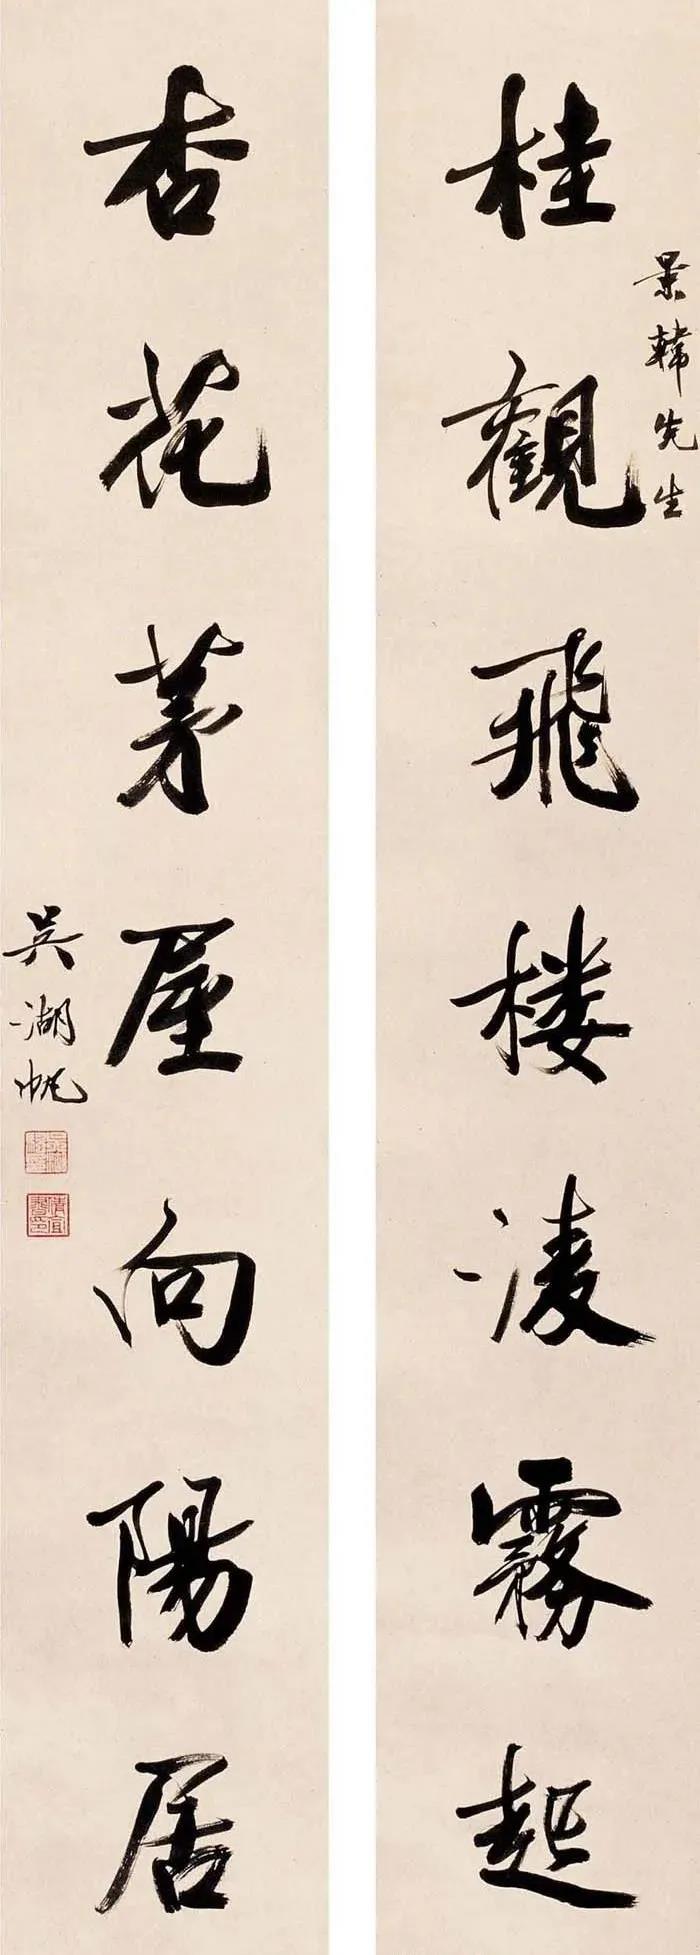 景韓先生
桂觀飛楼淩霧起
杏花茅屋向陽居
吳湖帆